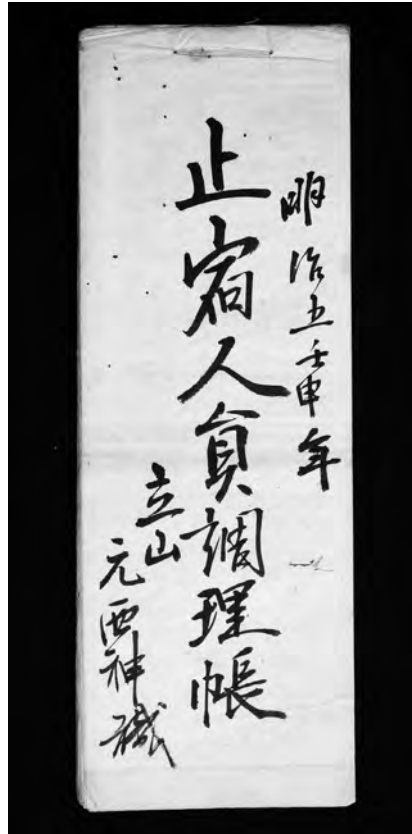 明治五壬申年
止宿人員調理帳
立山
元両神職